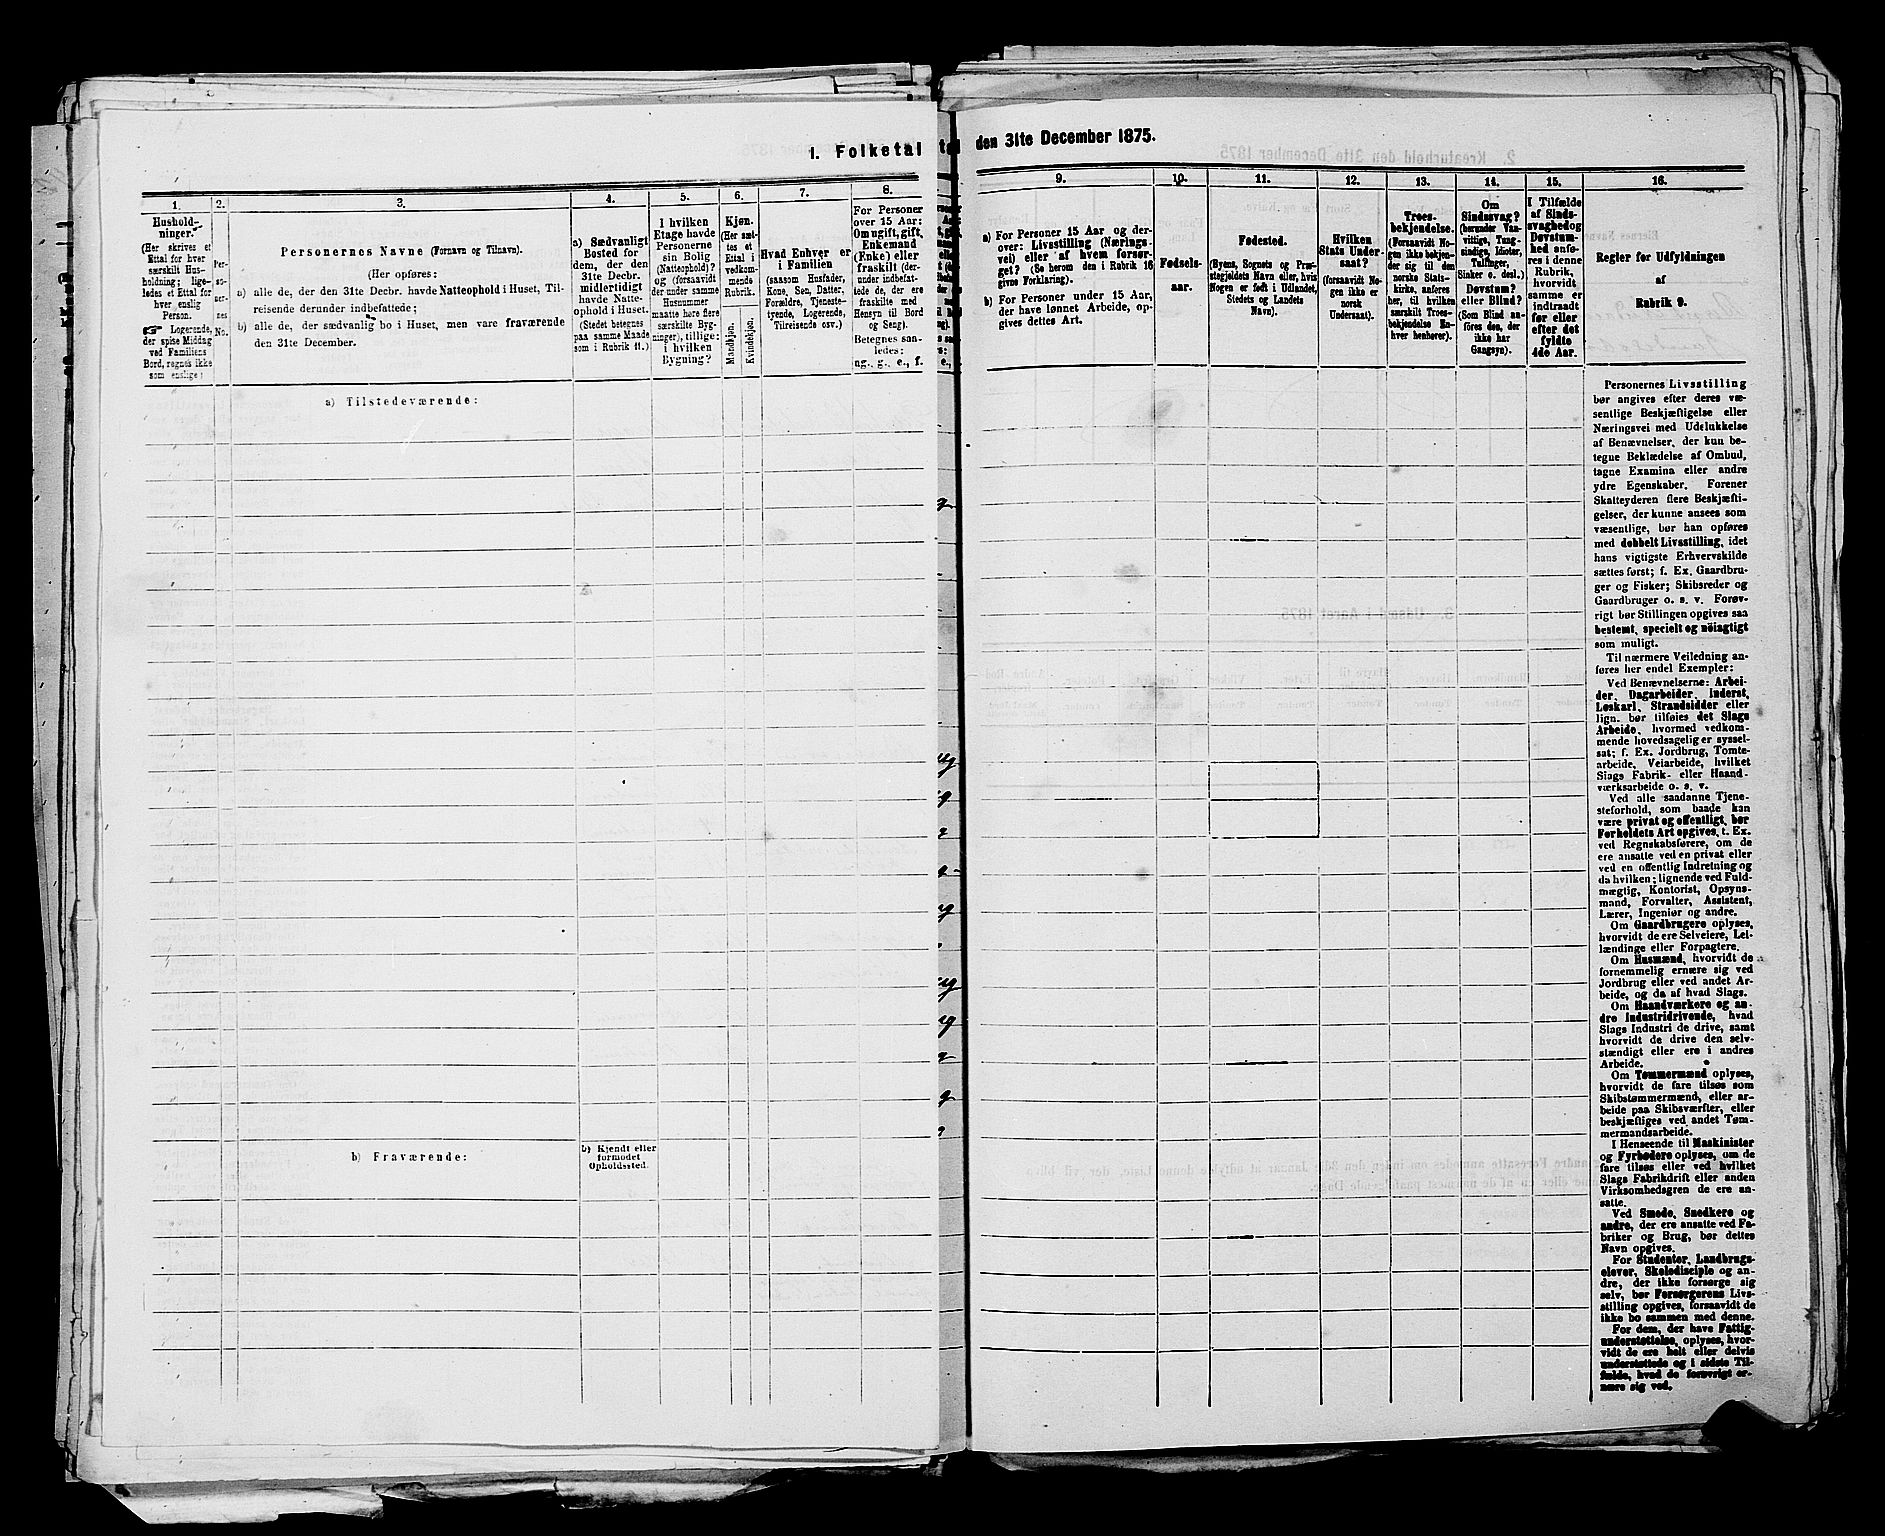 1. Folketal
tal
den 31te December 1875.
1.
Hushold-
ninger.
(Her skrives et
Ettal for hver
særskilt Hus-
holdning; lige-
ledes et Ettal for
hver enslig
Person.
☞ Logerende,
der spise Middag
ved Familiens
Bord, regnes ikke
som enslige;
2.
Per-
so-
ner-
nes
No.
3.
Personernes Navne (Fornavn og Tilnavn).
(Her opføres:
a) alle de, der den 31te Decbr. havde Natteophold i Huset, Til-
reisende derunder indbefattede;
b) alle de, der sædvanlig bo i Huset, men vare fraværende
den 31te December.
4.
a) Sædvanligt
Bosted for
dem, der den
31te Decbr.
midlertidigt
havde Natte-
ophold i Huset.
(Stedet betegnes
paa samme Maade
som i Rubrik 11.)
5.
I hvilken
Etage havde
Personerne
sin Bolig
(Natteophold)?
og (forsaavidt
der under samme
Husnummer
maatte høre flere
særskilte Byg-
ninger), tillige:
i hvilken
Bygning?
6.
Kjøn.
(Her sæt-
tes et
Ettal i
vedkom-
mende
Rubrik.
Mandkjøn.
Kvindekjøn.
7.
Hvad Enhver er
i Familien
(saasom Husfader,
Kone, Søn, Datter,
Forældre, Tjeneste-
tyende, Logerende,
Tilreisende osv.)
8.
For Personer
over 15 Aar:
Om ugift, gift,
Enkemand
(Enke) eller
fraskilt (der-
under indbefat-
tede de, der ere
fraskilte med
Hensyn til Bord
og Seng).
Betegnes saa-
ledes:
ug., g., e., f.
a) Tilstedeværende:
b) Fraværende:
b) Kjendt eller
formodet
Opholdssted.
9.
a) For Personer 15 Aar og der-
over: Livsstilling (Nærings-
vei) eller af hvem forsør-
get? (Se herom den i Rubrik 16
givne Forklaring).
b) For Personer under 15 Aar,
der have lønnet Arbeide, op-
gives dettes Art.
10.
Fødsels-
aar.
11.
Fødested.
(Byens, Sognets og Præ-
stegjeldets Navn eller, hvis
Nogen er født i Udlandet,
Stedets og Landets
Navn).
12.
Hvilken
Stats Under-
saat?
(forsaavidt No-
gen ikke er
norsk
Undersaat).
13.
Troes-
bekjendelse.
(Forsaavidt No-
gen ikke bekjen-
der sig til den
norske Stats-
kirke, anføres
her, til hvilken
særskilt Troes-
bekjendelse En-
hver henhører).
14.
Om
Sindssvag?
(herunder Vaa-
vittige, Tung-
sindige, Idioter,
Tullinger,
Sinker o. desl.)
Døvstum?
eller Blind?
(Som Blind an-
føres den, der
ikke har
Gangsyn).
15.
I Tilfælde
af Sinds-
svaghedog
Døvstum-
hed anfø-
res i denne
Rubrik,
hvorvidt
samme er
indtraadt
før eller
efter det
fyldte
4de Aar.
16.
Regler for Udfyldningen
af
Rubrik 9.
Personernes Livsstilling
bør angives efter deres væ-
sentlige Beskjæftigelse eller
Næringsvei med Udelukkelse
af Benævnelser, der kun be-
tegne Beklædelse af Ombud,
tagne Examina eller andre
ydre Egenskaber. Forener
Skatteyderen flere Beskjæfti-
gelser, der kunne ansees som
væsentlige, bør han opføres
med dobbelt Livsstilling, idet
hans vigtigste Erhvervskilde
sættes først; f. Ex. Gaardbru-
ger og Fisker; Skibsreder og
Gaardbruger o. s. v. Forøv-
rigt bør Stillingen opgives saa
bestemt, specielt og nøiagtigt
som muligt.
Til nærmere Veiledning an-
føres her endel Exempler:
Ved Benævnelserne: Arbei-
der, Dagarbeider, Inderst,
Løskarl, Strandsidder eller
lign. bør tilføies det Slags
Arbeide, hvormed vedkom-
mende hovedsagelig er syssel-
sat; f. Ex. Jordbrug, Tomte-
arbeide, Veiarbeide, hvilket
Slags Fabrik- eller Haand-
værksarbeide o. s. v.
Ved alle saadanne Tjene-
steforhold, som baade kan
være privat og offentligt, bør
Forholdets Art opgives, t. Ex.
ved Regnskabsførere, om de
ere ansatte ved en privat eller
ved en offentlig Indretning og
da hvilken; lignende ved Fuld-
mægtig, Kontorist, Opsyns-
mand, Forvalter, Assistent,
Lærer, Ingeniør og andre.
Om Gaardbrugere oplyses,
hvorvidt de ere Selveiere, Lei-
lændinge eller Forpagtere.
Om Husmænd, hvorvidt de
fornemmelig ernære sig ved
Jordbrug eller ved andet Ar-
beide, og da af hvad Slags.
Om Haandværkere og an-
dre Industridrivende, hvad
Slags Industri de drive, samt
hvorvidt de drive den selv-
stændigt eller ere i andres
Arbeide.
Om Tømmermænd oplyses,
hvorvidt de fare tilsøs som
Skibstømmermænd, eller ar-
beide paa Skibsværfter, eller
beskjæftiges ved andet Tøm-
mermandsarbeide.
I Henseende til Maskinister
og Fyrbødere oplyses, om de
fare tilsøs eller ved hvilket
Slags Fabrikdrift eller anden
Virksomhedsgren de ere an-
satte.
Ved Smede, Snedkere og
andre, der ere ansatte ved Fa-
briker og Brug, bør dettes
Navn opgives.
For Studenter, Landbrugs-
elever, Skoledisciple og an-
dre, der ikke forsørge sig
selv, bør Forsørgerens Livs-
stilling opgives, forsaavidt de
ikke bo sammen med denne.
For dem, der have Fattig-
understøttelse, oplyses, hvor-
vidt de ere helt eller delvis
understøttede og i sidste Til-
fælde, hvad de forøvrigt er-
nære sig ved.